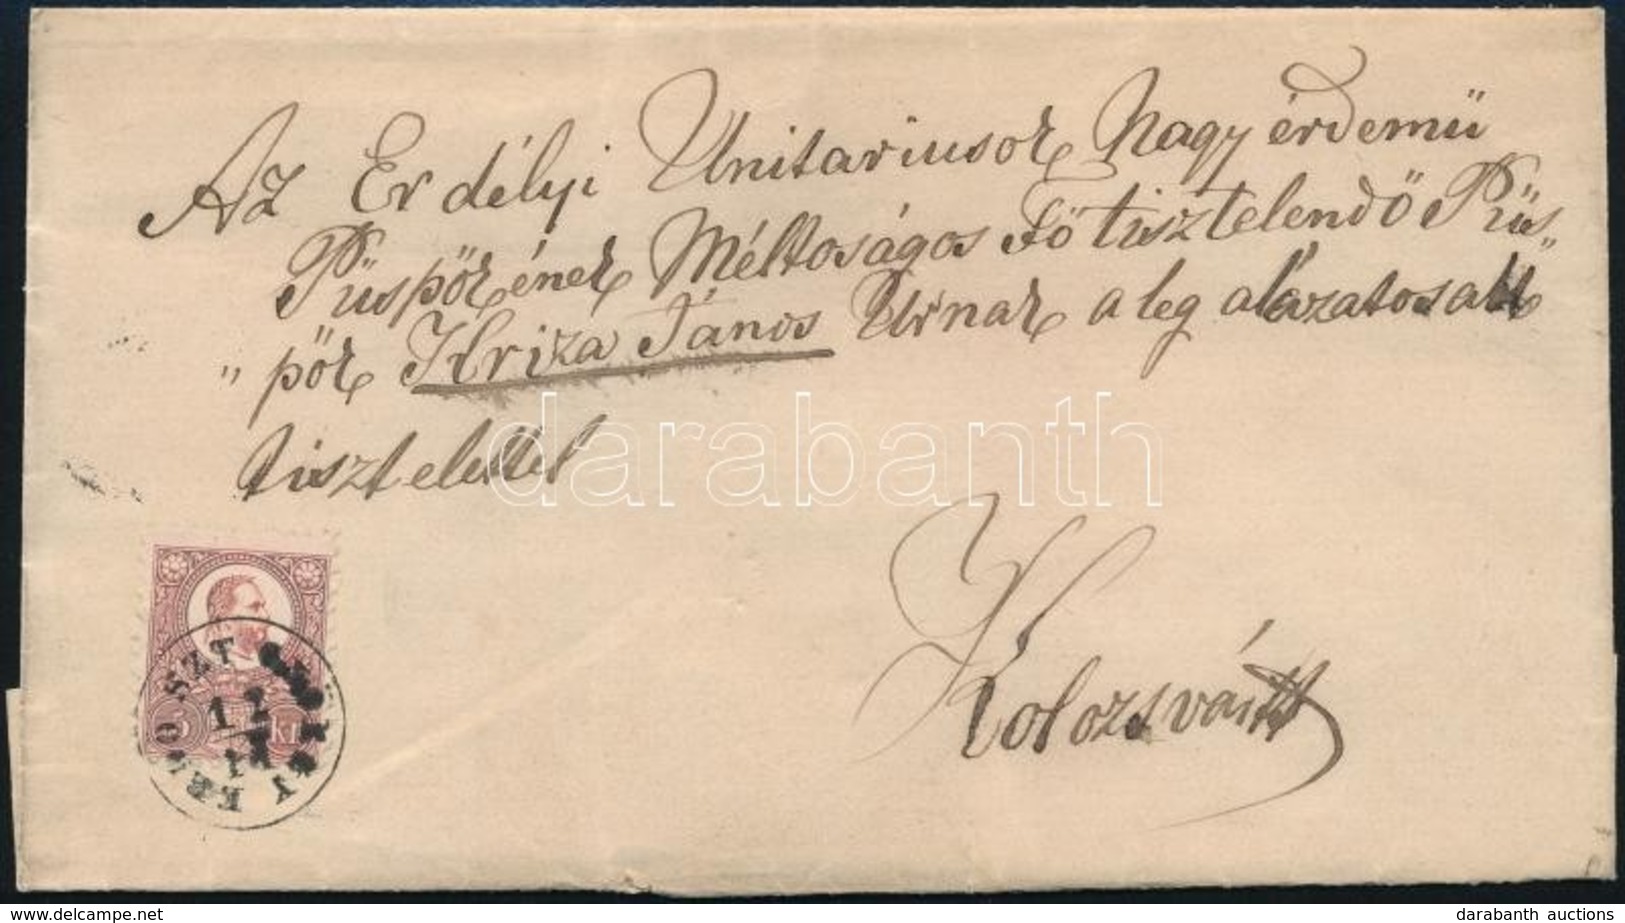 Az Erdélyi Unitariusok Nagy érdemü
Püspökének Méltoságos Főtisztelendő Püs„
„pök Kriza János Urnak a leg alázatosabb
tisztelettel
darabanth
Kolozsvártt
SZT
12
5 Kr
www.delcampe.net
darabanth auctions